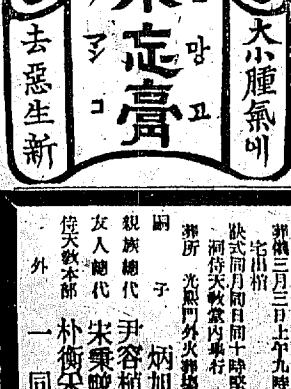 大小腫氣에
망고
忘膏
マンコ
去惡生新
葬儀三月三日上午九時
宅出棺
訣式同月同日同十時
洞侍天敎堂內擧行
葬所 光熙門外火葬場
嗣子 炳
親族總代 尹容植
友人總代 宋秉畯
侍天敎本部 朴衡采
外 一同